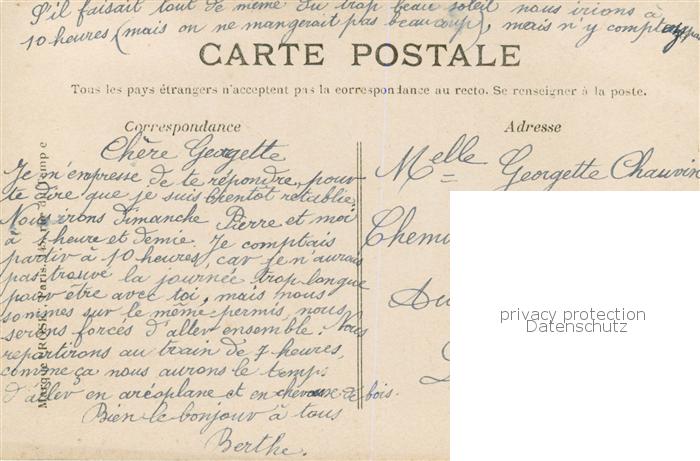 S'il faisait tout de même du trop beau soleil nous irions à
10 heures (mais on ne mangerait pas beaucoup), mais n'y comptez pas
CARTE POSTALE
Tous les pays étrangers n'acceptent pas la correspondance au recto. Se renseigner à la poste.
Correspondance
Chère Georgette
Je m'empresse de te répondre, pour
te dire que je suis bientôt rétablie,
Nous irons dimanche Pierre et moi
à 1 heure et demie. Je comptais
partir à 10 heures, car je n'aurais
pas trouvé la journée trop longue
pour être avec toi, mais nous
sommes sur le même permis, nous
serons forcés d'aller ensemble. Nous
repartirons au train de 7 heures,
comme ça nous aurons le temps
d'aller en aréoplane et en chevaux de bois.
Bien le bonjour à tous
Berthe.
Adresse
Melle Georgette Chauvin
Chem
privacy protection
Datenschutz
Marque ROSE, Paris